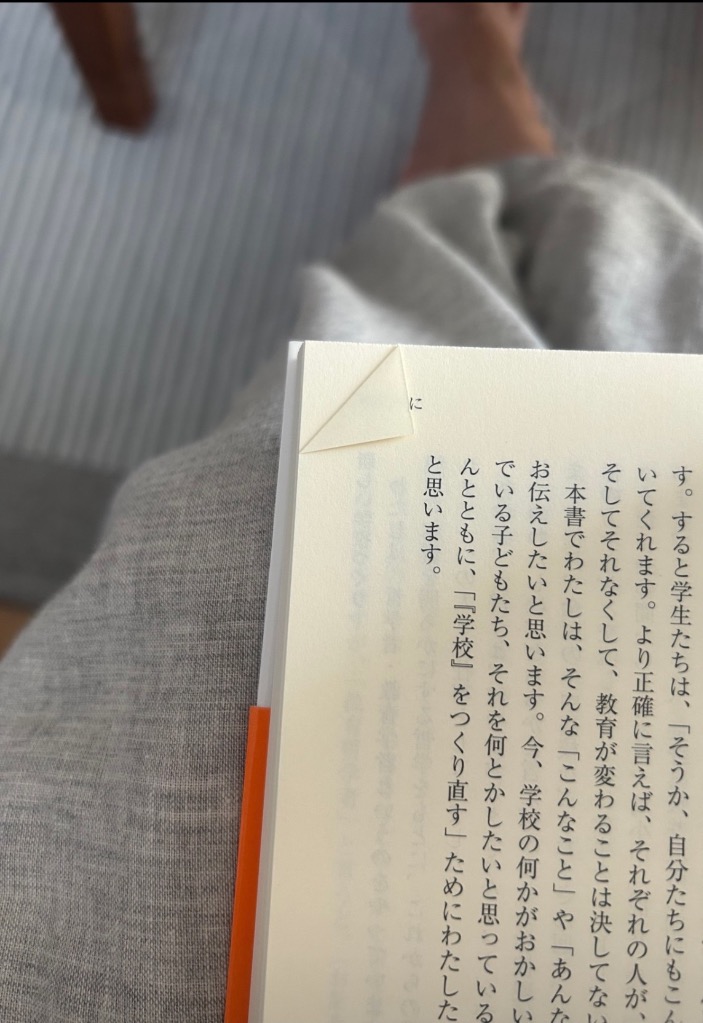 に
す。すると学生たちは、「そうか、自分たちにもこん
いてくれます。より正確に言えば、それぞれの人が、
そしてそれなくして、教育が変わることは決してない
本書でわたしは、そんな「こんなこと」や「あんな
お伝えしたいと思います。今、学校の何かがおかしい
でいる子どもたち、それを何とかしたいと思っている
んとともに、「『学校』をつくり直す」ためにわたした
と思います。